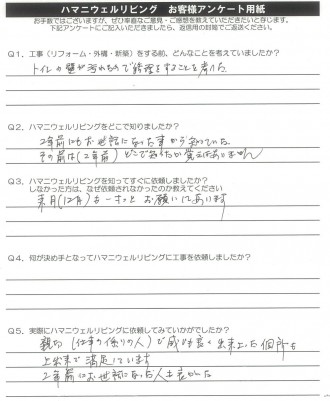 ハマニウェルリビング　お客様アンケート用紙
お手数ではございますが、ぜひ率直なご意見・ご感想を教えていただきたいと存じます。
下記アンケートにご記入いただきましたら、返信用の封筒でご返送ください。
Q1．工事（リフォーム・外構・新築）をする前、どんなことを考えていましたか？
トイレの壁が汚れたので修理をすることを考えた
Q2．ハマニウェルリビングをどこで知りましたか？
2年前にもお世話になった事から知っていた
その前は（2年前）どこで知れたか覚えはありません
Q3．ハマニウェルリビングを知ってすぐに依頼しましたか？
しなかった方は、なぜ依頼されなかったのか教えてください
来月（12月）お願いしてあります
Q4．何が決め手となってハマニウェルリビングに工事を依頼しましたか？
Q5．実際にハマニウェルリビングに依頼してみていかがでしたか？
親切（仕事の係りの人）で感じも良く出来上った個所も
上出来で満足しています
2年前にお世話になった人も良かった